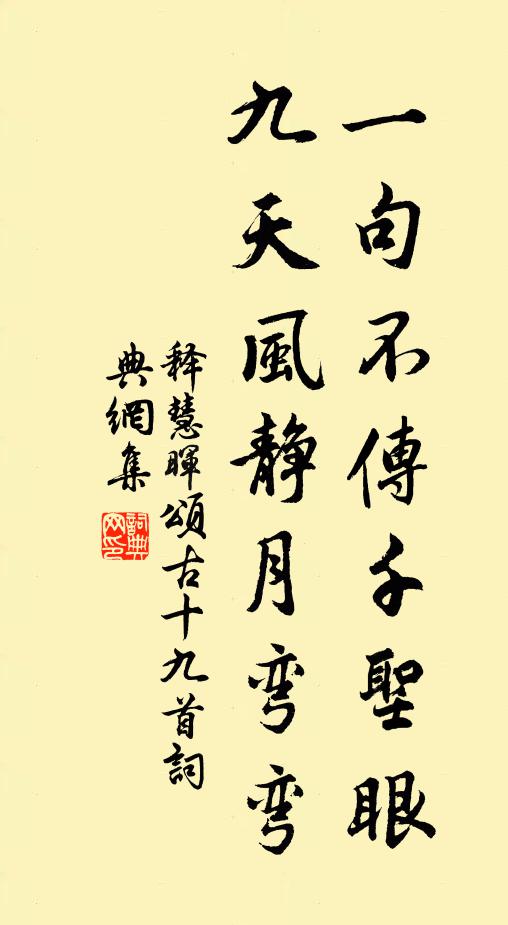 一句不傳千聖眼
九天風靜月彎彎
释慧暉頌古十九首詞
典網集
詞典网印